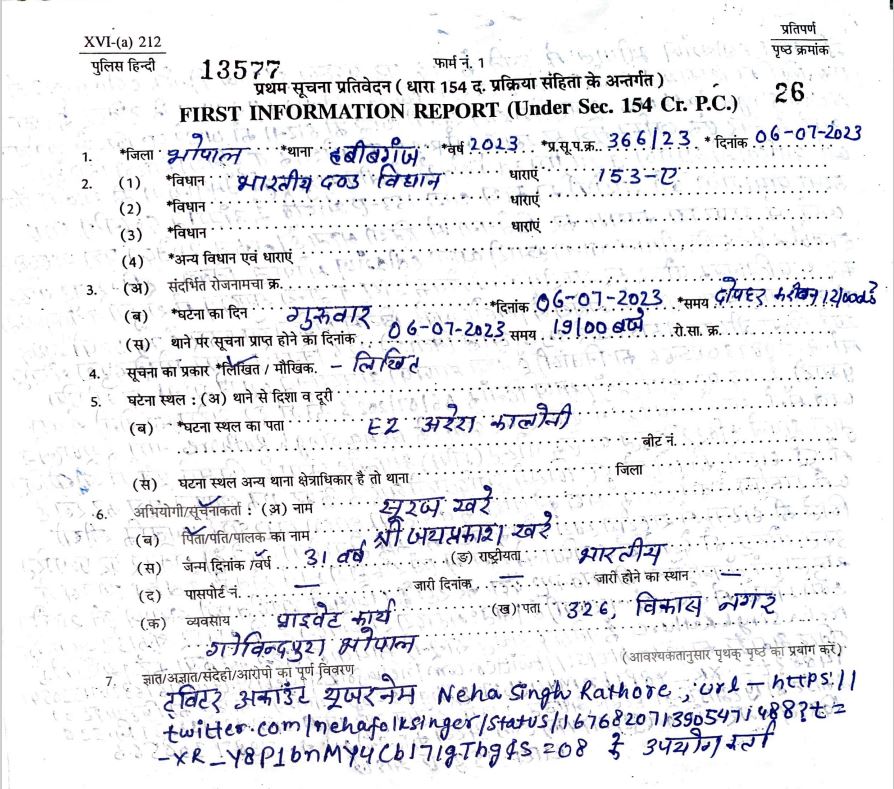 XVI-(a) 212
पुलिस हिन्दी
13577
फार्म नं. 1
प्रतिपर्ण
पृष्ठ क्रमांक
26
प्रथम सूचना प्रतिवेदन ( धारा 154 द. प्रक्रिया संहिता के अन्तर्गत )
FIRST INFORMATION REPORT (Under Sec. 154 Cr. P.C.)
1. *जिला भोपाल *थाना हबीबगंज *वर्ष 2023 *प्र.सू.प.क्र. 366/23 * दिनांक 06-07-2023
2. (1) *विधान भारतीय दण्ड विधान धाराएं 153-ए
(2) *विधान धाराएं
(3) *विधान धाराएं
(4) *अन्य विधान एवं धाराएं
3. (अ) संदर्भित रोजनामचा क्र.
(ब) *घटना का दिन गुरुवार *दिनांक 06-07-2023 *समय दोपहर करीबन 12/00बजे
(स) थाने पर सूचना प्राप्त होने का दिनांक 06-07-2023 समय 19/00 बजे रो.सा. क्र.
4. सूचना का प्रकार *लिखित / मौखिक. - लिखित
5. घटना स्थल : (अ) थाने से दिशा व दूरी
(ब) *घटना स्थल का पता E2 अरेरा कालोनी
बीट नं.
(स) घटना स्थल अन्य थाना क्षेत्राधिकार है तो थाना जिला
6. अभियोगी/सूचनाकर्ता : (अ) नाम सूरज खरे
(ब) पिता/पति/पालक का नाम श्री जयप्रकाश खरे
(स) जन्म दिनांक /वर्ष 31 वर्ष (ड) राष्ट्रीयता भारतीय
(द) पासपोर्ट नं. — जारी दिनांक — जारी होने का स्थान —
(क) व्यवसाय प्राइवेट कार्य (ख) पता 326, विकास नगर
गोविन्दपुरा भोपाल
(आवश्यकतानुसार पृथक् पृष्ठ का प्रयोग करें)
7. ज्ञात/अज्ञात/संदेही/आरोपी का पूर्ण विवरण
ट्विटर अकाउंट यूजरनेम Neha Singh Rathore, url - https://
twitter.com/nehafolksinger/status/1676820713905471488?t=
-XR_Y8P1bnMY4Cb171gThg&S=08 के उपयोगकर्ता